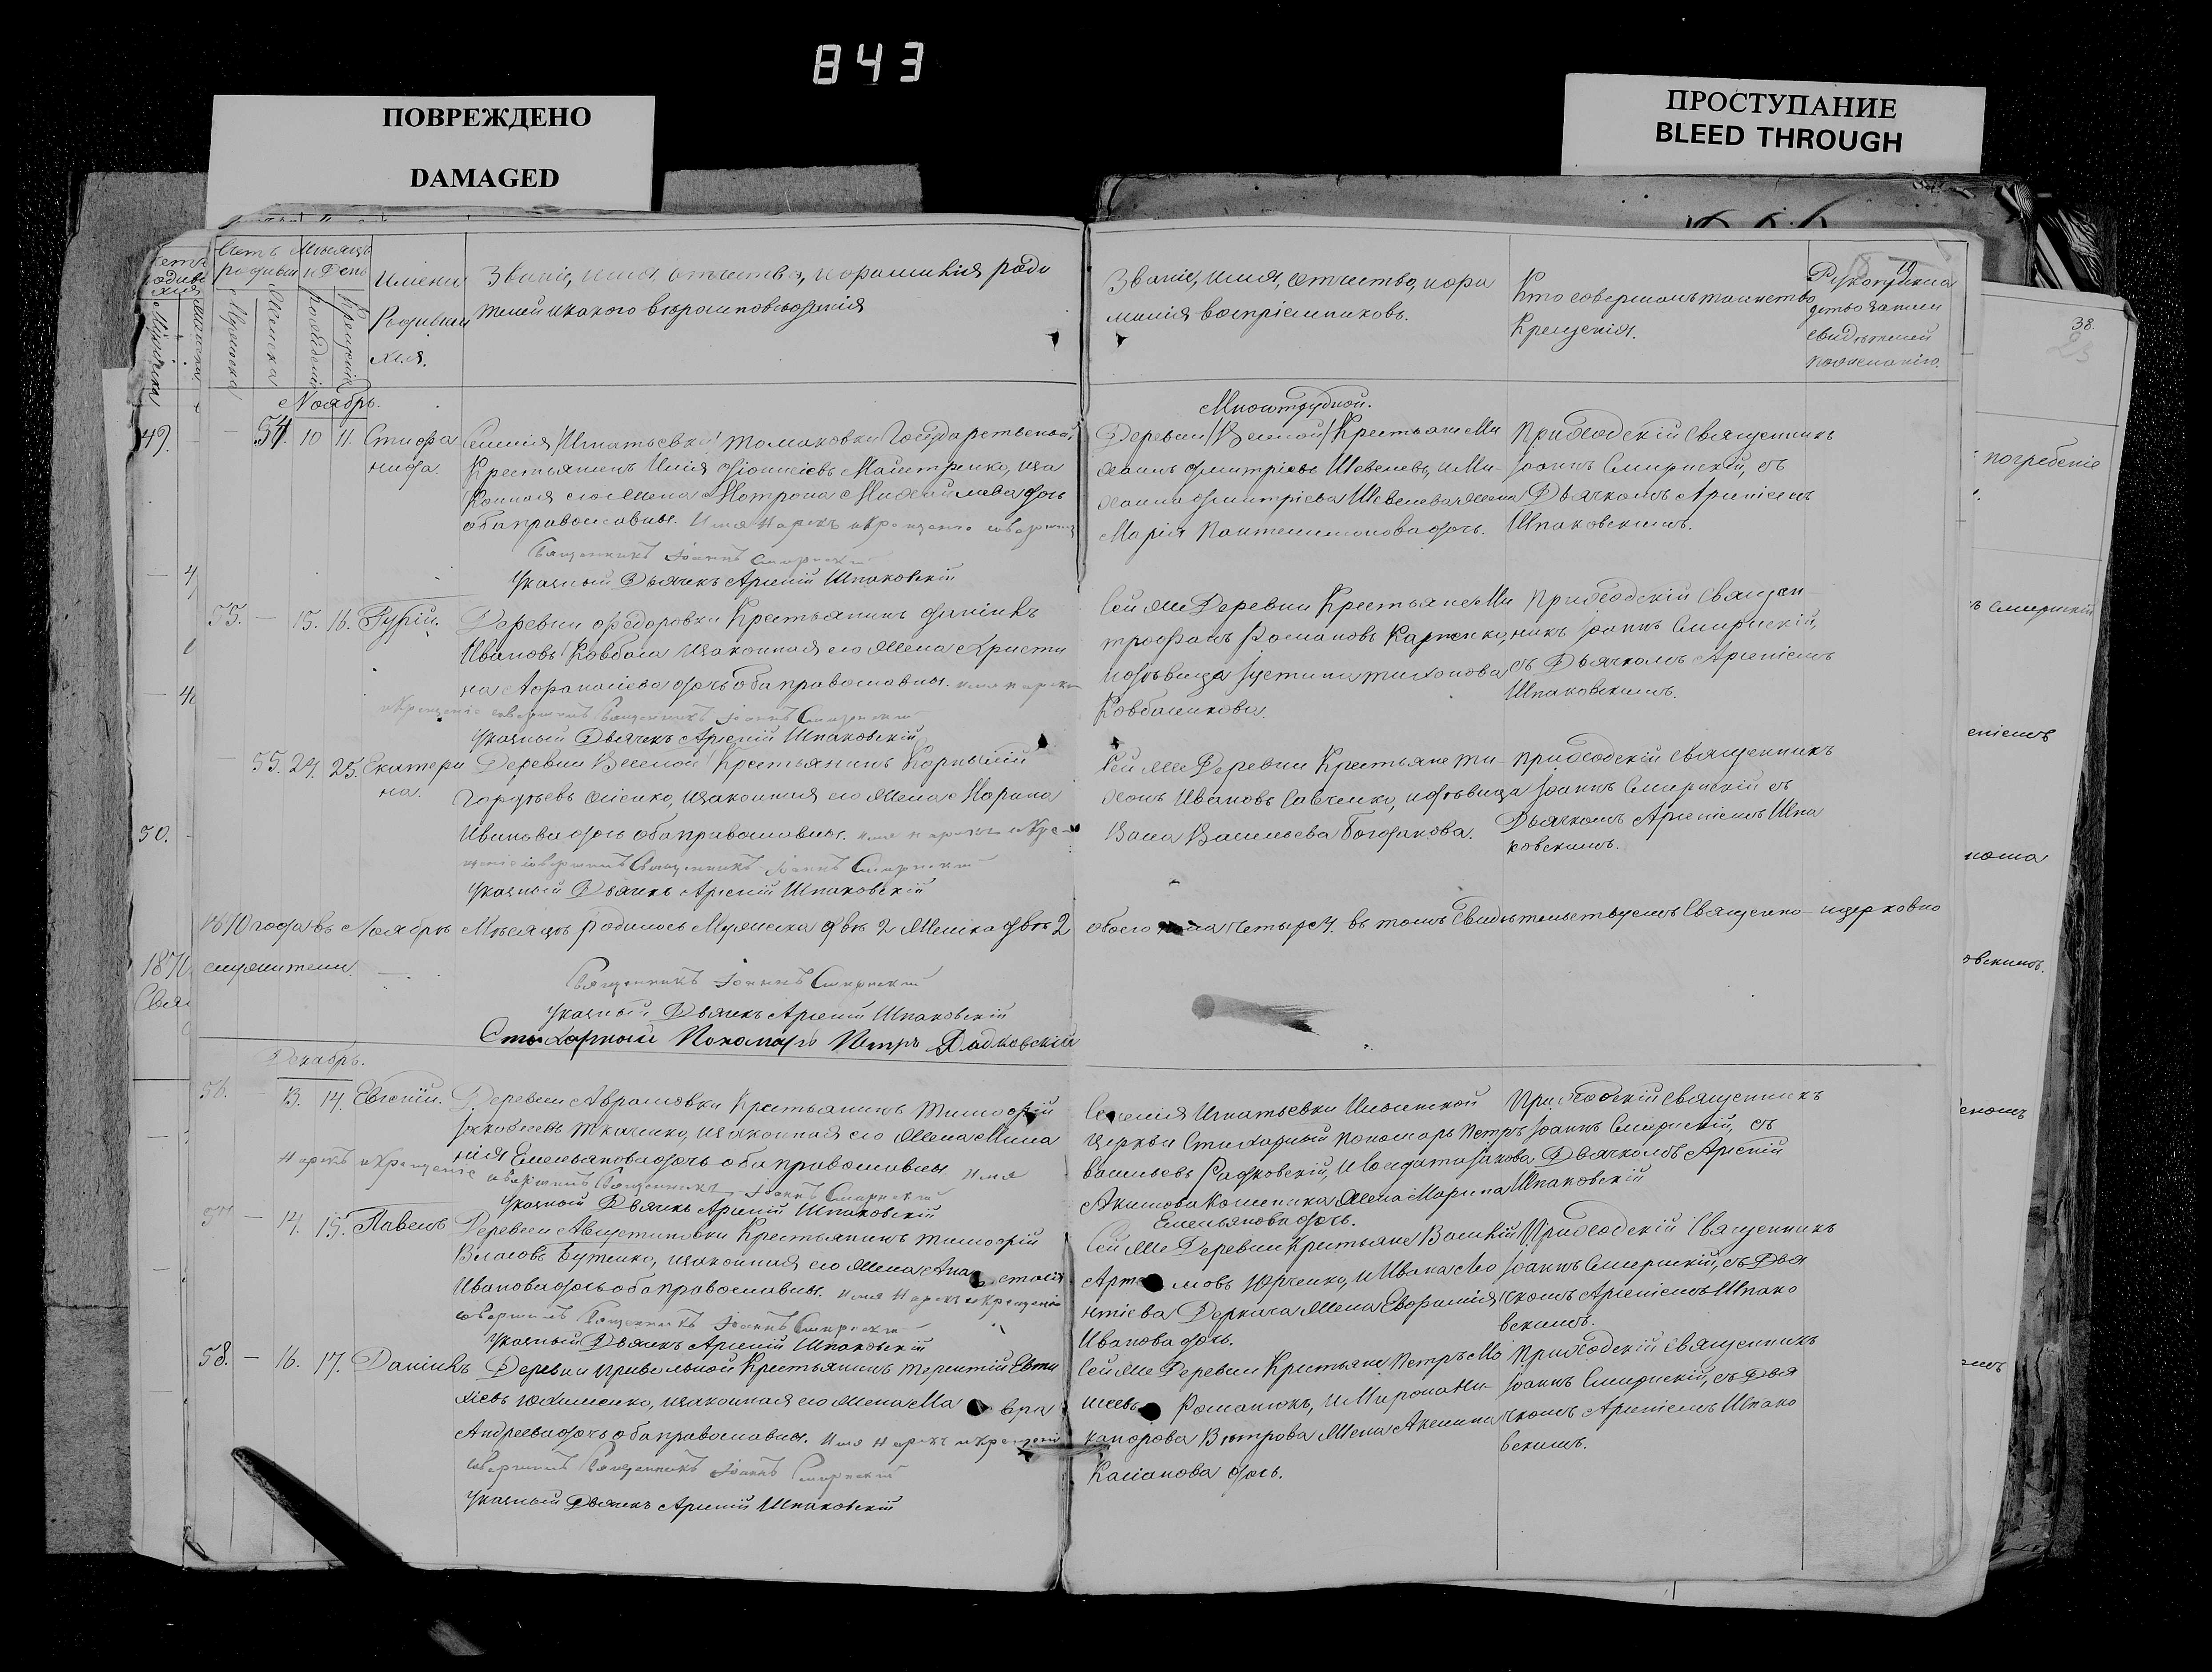 843
ПОВРЕЖДЕНО
DAMAGED
ПРОСТУПАНИЕ
BLEED THROUGH
38.
Счетъ Мѣсяцъ
и День
Имена
Званіе, имя, отчество, и фамилія роди
телей и какого вѣроисповѣданія
Мужска
Женска
Званіе, имя, отчество, и фами
лія воспріемниковъ.
Кто совершалъ таинство
Крещенія.
Рукоприкла
свидѣтелей
Ноябрь.
49.
54. 10 11. Стефа
нида.
Селенія Игнатьевки
Крестьянинъ
Жена Матрона Михайлова дочь
оба православны. Имя нарекъ и Крещеніе совершилъ
Священникъ Іоаннъ
Указный Дьячекъ Арсеній Шпаковскій
Деревни Крестьяне Ми
хаилъ Дмитріевъ Шевелевъ, и Ми-
хаила Дмитріева Шевелева Жена
Марія Пантелимонова дочь.
Приходскій Священникъ
Іоаннъ съ
Дьячкомъ Арсеніемъ
Шпаковскимъ.
55. — 15. 16. Гурій.
Деревни Федоровки Крестьянинъ Даніилъ
Ивановъ Ковбаса и законная его Жена Христи
на Афанасіева дочь оба православны. имя нарекъ
и Крещеніе совершилъ Священникъ Іоаннъ
Указный Дьячекъ Арсеній Шпаковскій
Сей же Деревни Крестьяне Ми
трофанъ Романовъ Карпенко,
и дѣвица Іустина Тихонова
Приходскій Священ-
никъ Іоаннъ
съ Дьячкомъ Арсеніемъ
Шпаковскимъ.
— 55. 24. 25. Екатери
на.
Деревни Веселой Крестьянинъ Корнилій
Гордѣевъ и законная его Жена Марина
Иванова дочь оба православны. имя нарекъ и Кре-
щеніе совершилъ Священникъ Іоаннъ
Указный Дьячекъ Арсеній Шпаковскій
Сей же Деревни Крестьяне Ти-
хонъ Ивановъ Савченко, и дѣвица
Васильева Богданова.
Приходскій Священникъ
Іоаннъ съ
Дьячкомъ Арсеніемъ Шпа
ковскимъ.
50.
1870 года въ Ноябрѣ Мѣсяцѣ родилось Мужеска двѣ 2 Женска двѣ 2
обоего пола четыре 4. въ томъ Свидѣтельствуемъ Священно- церковно
служители.
Священникъ Іоаннъ
Указный Дьячекъ Арсеній Шпаковскій
Стихарный Пономарь Петръ Радковскій
Декабрь.
56. 13. 14. Евгеній.
Деревни Абрамовки Крестьянинъ Тимофій
Яковлевъ Ткаченко, и законная его Жена Мела
нія Емельянова дочь оба православны. Имя
Нарекъ и Крещеніе совершилъ Священникъ Іоаннъ
Указный Дьячекъ Арсеній Шпаковскій
Селенія Игнатьевки Ильинской
Церкви Стихарный Пономарь Петръ
Васильевъ Радковскій, и Солдата Якова
Акимова Жена Марина
Емельянова дочь.
Приходскій Священникъ
Іоаннъ съ
Дьячкомъ Арсеній
Шпаковскій
57. — 14. 15. Павелъ
Деревни Августиновки Крестьянинъ Тимофій
Власовъ Бутенко, и законная его Жена Ана стасія
Иванова дочь оба православны. Имя Нарекъ и Крещеніе
совершилъ Священникъ Іоаннъ
Указный Дьячекъ Арсеній Шпаковскій
Сей же Деревни Крестьяне Василій
Арте мовъ Юрченко, и Ивана Лео
нтіева Деркача Жена Евфимія
Иванова дочь.
Приходскій Священникъ
Іоаннъ съ Дья
чкомъ Арсеніемъ Шпако
вскимъ.
58. — 16. 17. Даніилъ
Деревни Привольной Крестьянинъ Терентій Евти
хіевъ и законная его Жена Ма вра
Андреева дочь оба православны. Имя Нарекъ и Крещеніе
совершилъ Священникъ Іоаннъ
Указный Дьячекъ Арсеній Шпаковскій
Сей же Деревни Крестьяне Петръ Мо
исеевъ Романюкъ, и Мирона Ни-
канорова Вѣтрова Жена Акелина
Касіанова дочь.
Приходскій Священникъ
Іоаннъ съ Дья
чкомъ Арсеніемъ Шпако
вскимъ.
погребеніе